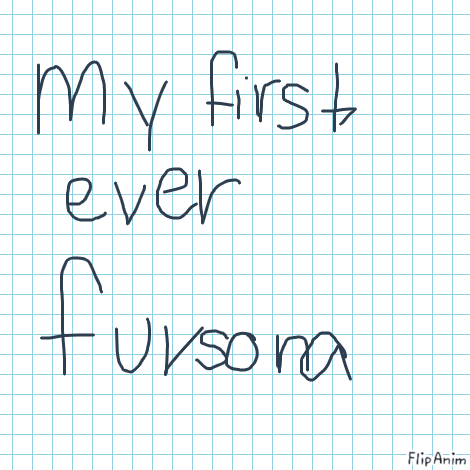 My first
ever
fursona
FlipAnim